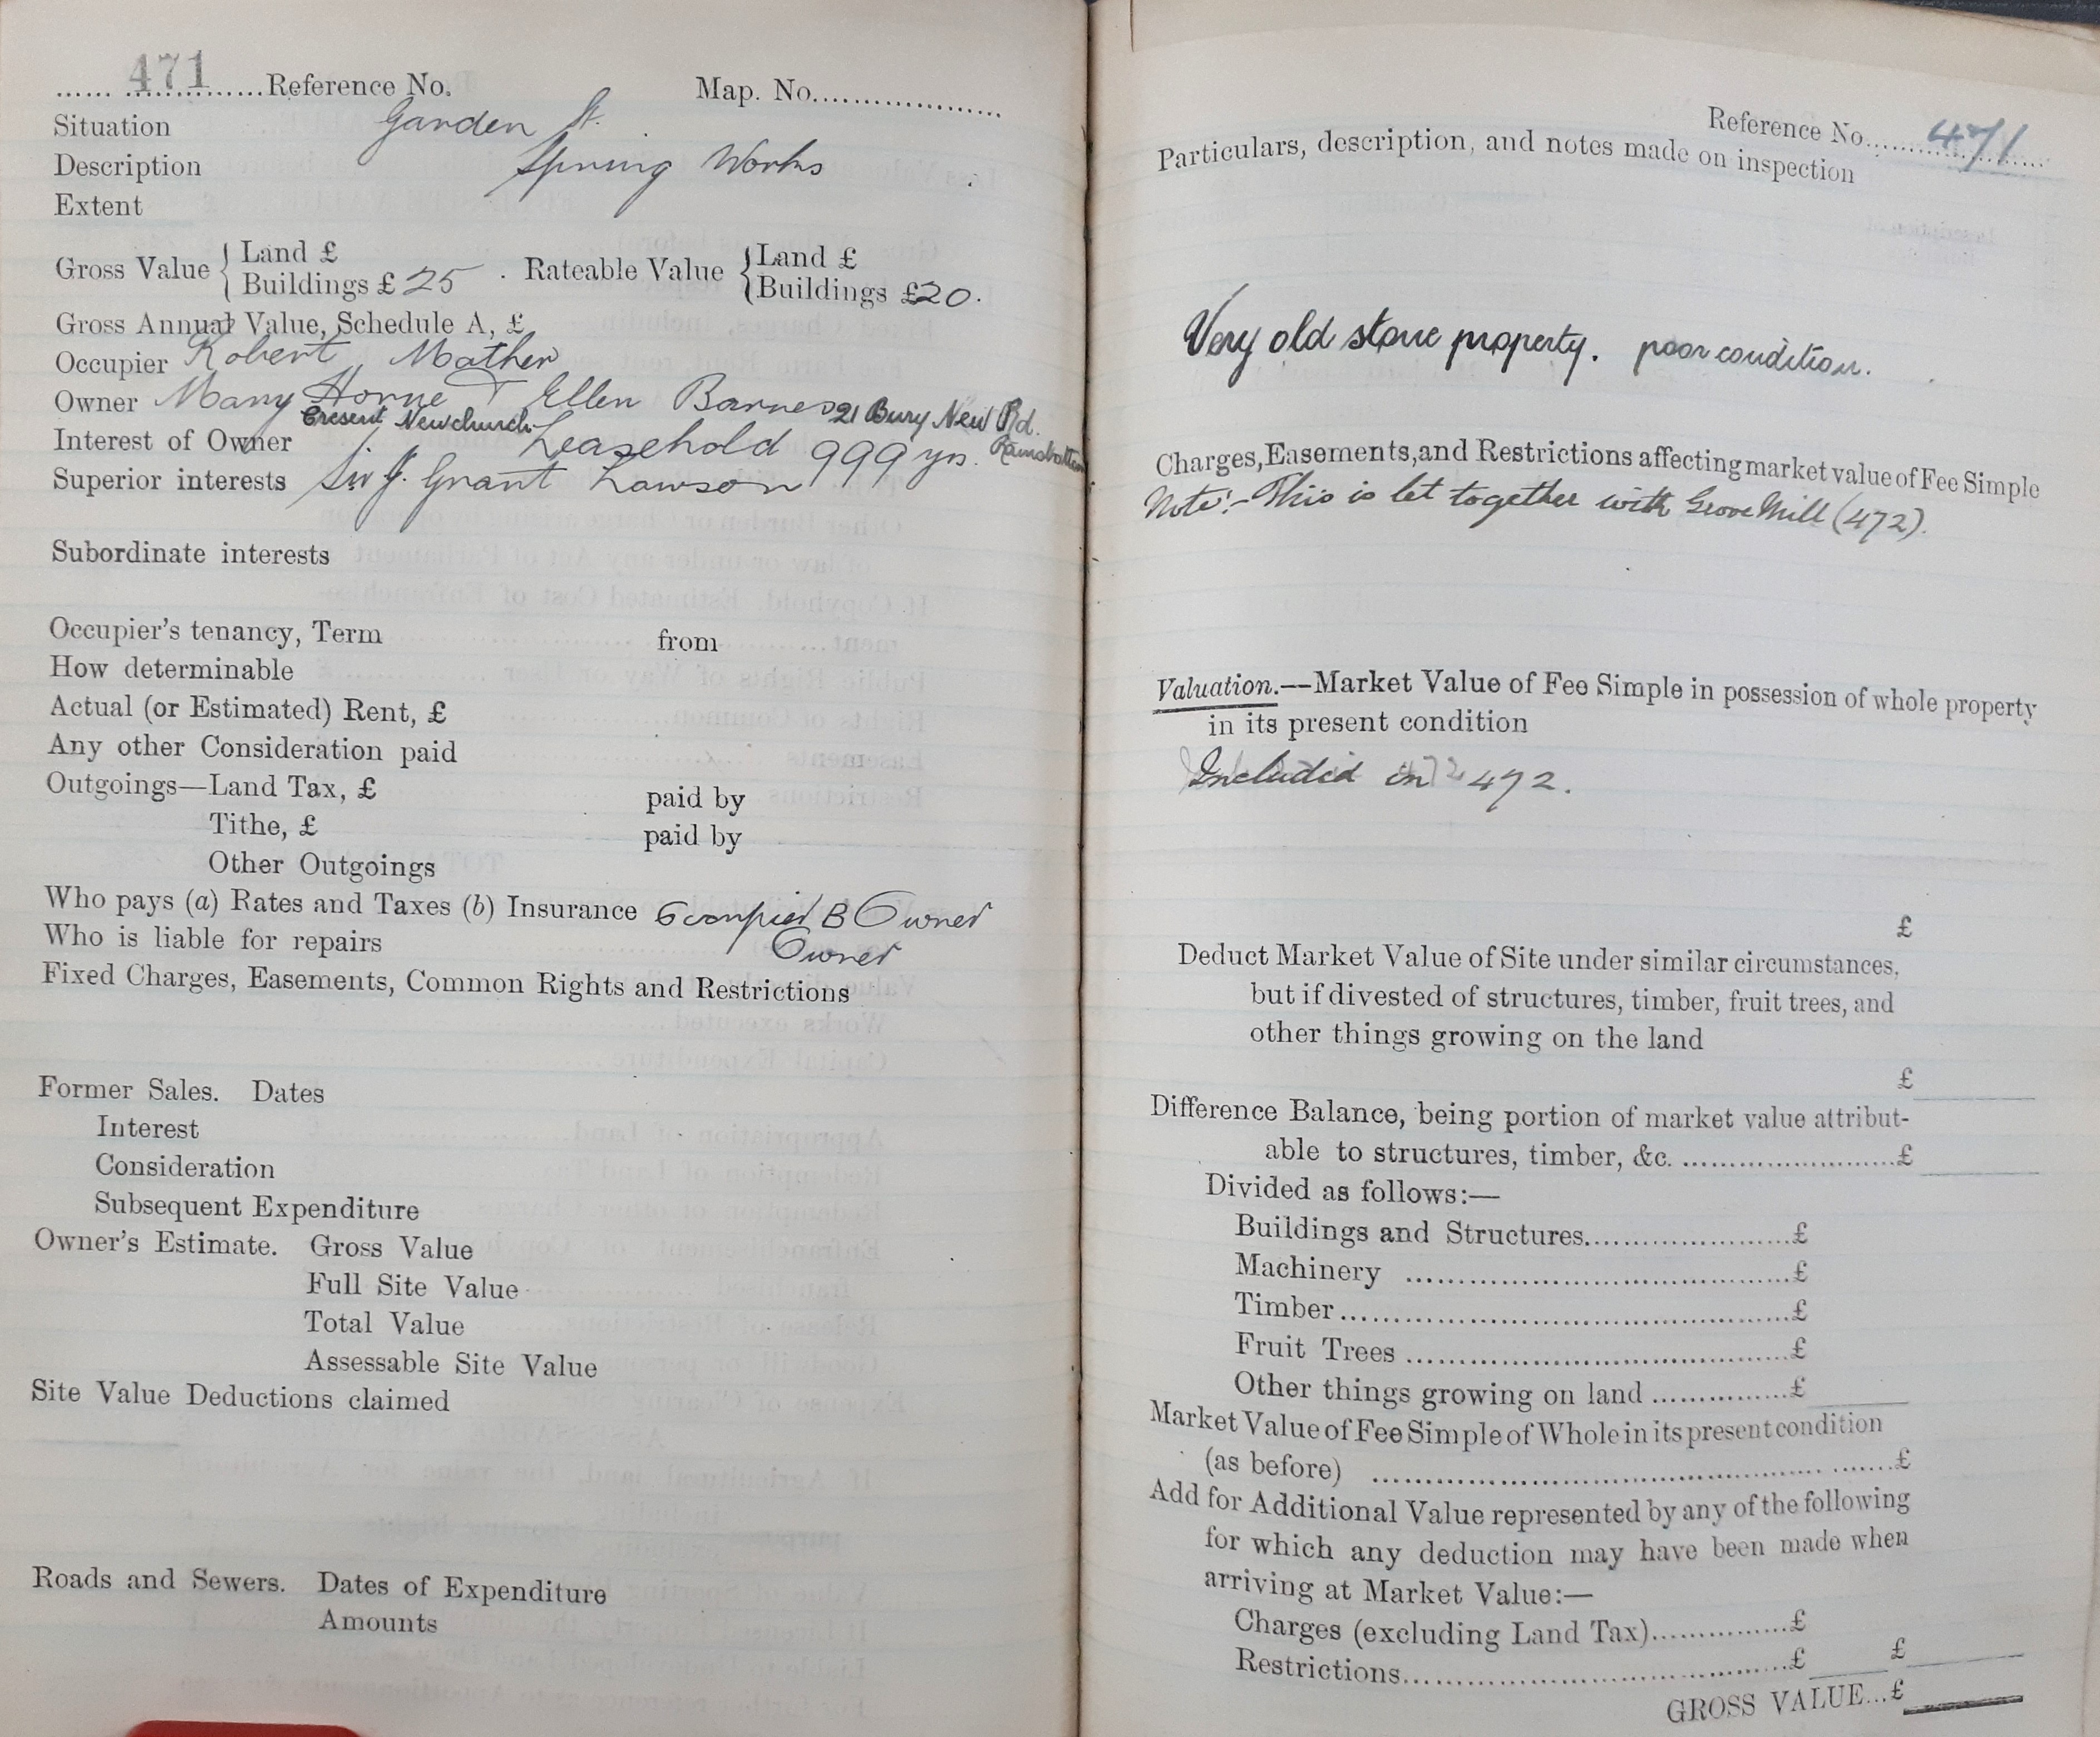 471 Reference No. Map. No.
Situation Garden St.
Description Spring Works
Extent
Gross Value { Land £ Rateable Value { Land £
Buildings £ 25 . Buildings £20.
Gross Annual Value, Schedule A, £
Occupier Robert Mather
Owner Mary Horne & Ellen Barnes 21 Bury New Rd.
Cresent Newchurch Ramsbottom
Interest of Owner Leasehold 999 yrs.
Superior interests Sir J. Grant Lawson
Subordinate interests
Occupier's tenancy, Term from
How determinable
Actual (or Estimated) Rent, £
Any other Consideration paid
Outgoings—Land Tax, £ paid by
Tithe, £ paid by
Other Outgoings
Who pays (a) Rates and Taxes (b) Insurance Occupier B Owner
Who is liable for repairs Owner
Fixed Charges, Easements, Common Rights and Restrictions
Former Sales. Dates
Interest
Consideration
Subsequent Expenditure
Owner's Estimate. Gross Value
Full Site Value
Total Value
Assessable Site Value
Site Value Deductions claimed
Roads and Sewers. Dates of Expenditure
Amounts
Reference No. 471
Particulars, description, and notes made on inspection
Very old stone property. poor condition.
Charges, Easements, and Restrictions affecting market value of Fee Simple
Note:- This is let together with Grove Mill (472).
Valuation.—Market Value of Fee Simple in possession of whole property
in its present condition
Included in 472.
£
Deduct Market Value of Site under similar circumstances,
but if divested of structures, timber, fruit trees, and
other things growing on the land
£
Difference Balance, being portion of market value attribut-
able to structures, timber, &c. £
Divided as follows:—
Buildings and Structures £
Machinery £
Timber £
Fruit Trees £
Other things growing on land £
Market Value of Fee Simple of Whole in its present condition
(as before) £
Add for Additional Value represented by any of the following
for which any deduction may have been made when
arriving at Market Value:—
Charges (excluding Land Tax) £
Restrictions £ £
GROSS VALUE... £